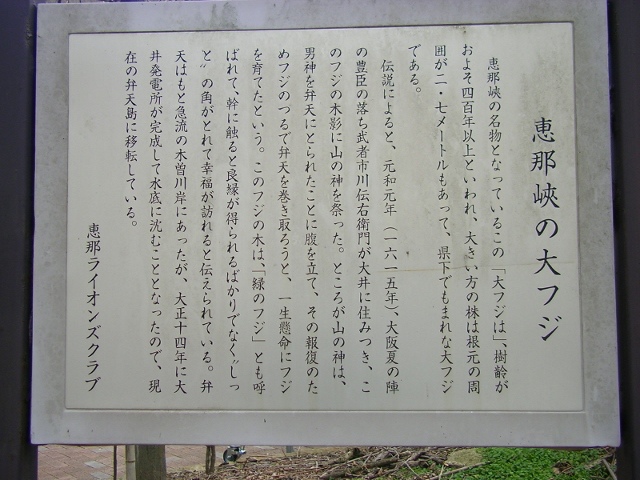 恵那峡の大フジ
恵那峡の名物となっているこの「大フジは」、樹齢が
およそ四百年以上といわれ、大きい方の株は根元の周
囲が二・七メートルもあって、県下でもまれな大フジ
である。
伝説によると、元和元年（一六一五年）、大阪夏の陣
の豊臣の落ち武者市川伝右衛門が大井に住みつき、こ
のフジの木影に山の神を祭った。ところが山の神は、
男神を弁天にとられたことに腹を立て、その報復のた
めフジのつるで弁天を巻き取ろうと、一生懸命にフジ
を育てたという。このフジの木は、「縁のフジ」とも呼
ばれて、幹に触ると良縁が得られるばかりでなく〝しっ
と〟の角がとれて幸福が訪れると伝えられている。弁
天はもと急流の木曽川岸にあったが、大正十四年に大
井発電所が完成して水底に沈むこととなったので、現
在の弁天島に移転している。
恵那ライオンズクラブ